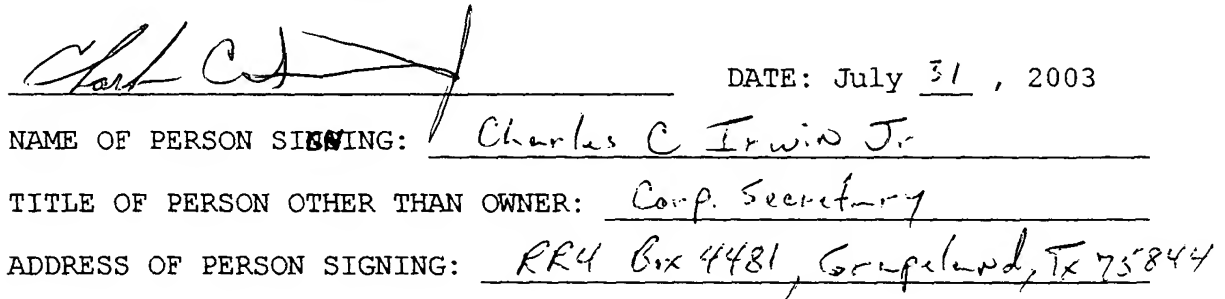 DATE: July 31, 2003
NAME OF PERSON SIGNING: Charles C Irwin Jr
TITLE OF PERSON OTHER THAN OWNER: Corp. Secretary
ADDRESS OF PERSON SIGNING: RR4 Box 4481, Grapeland, Tx 75844